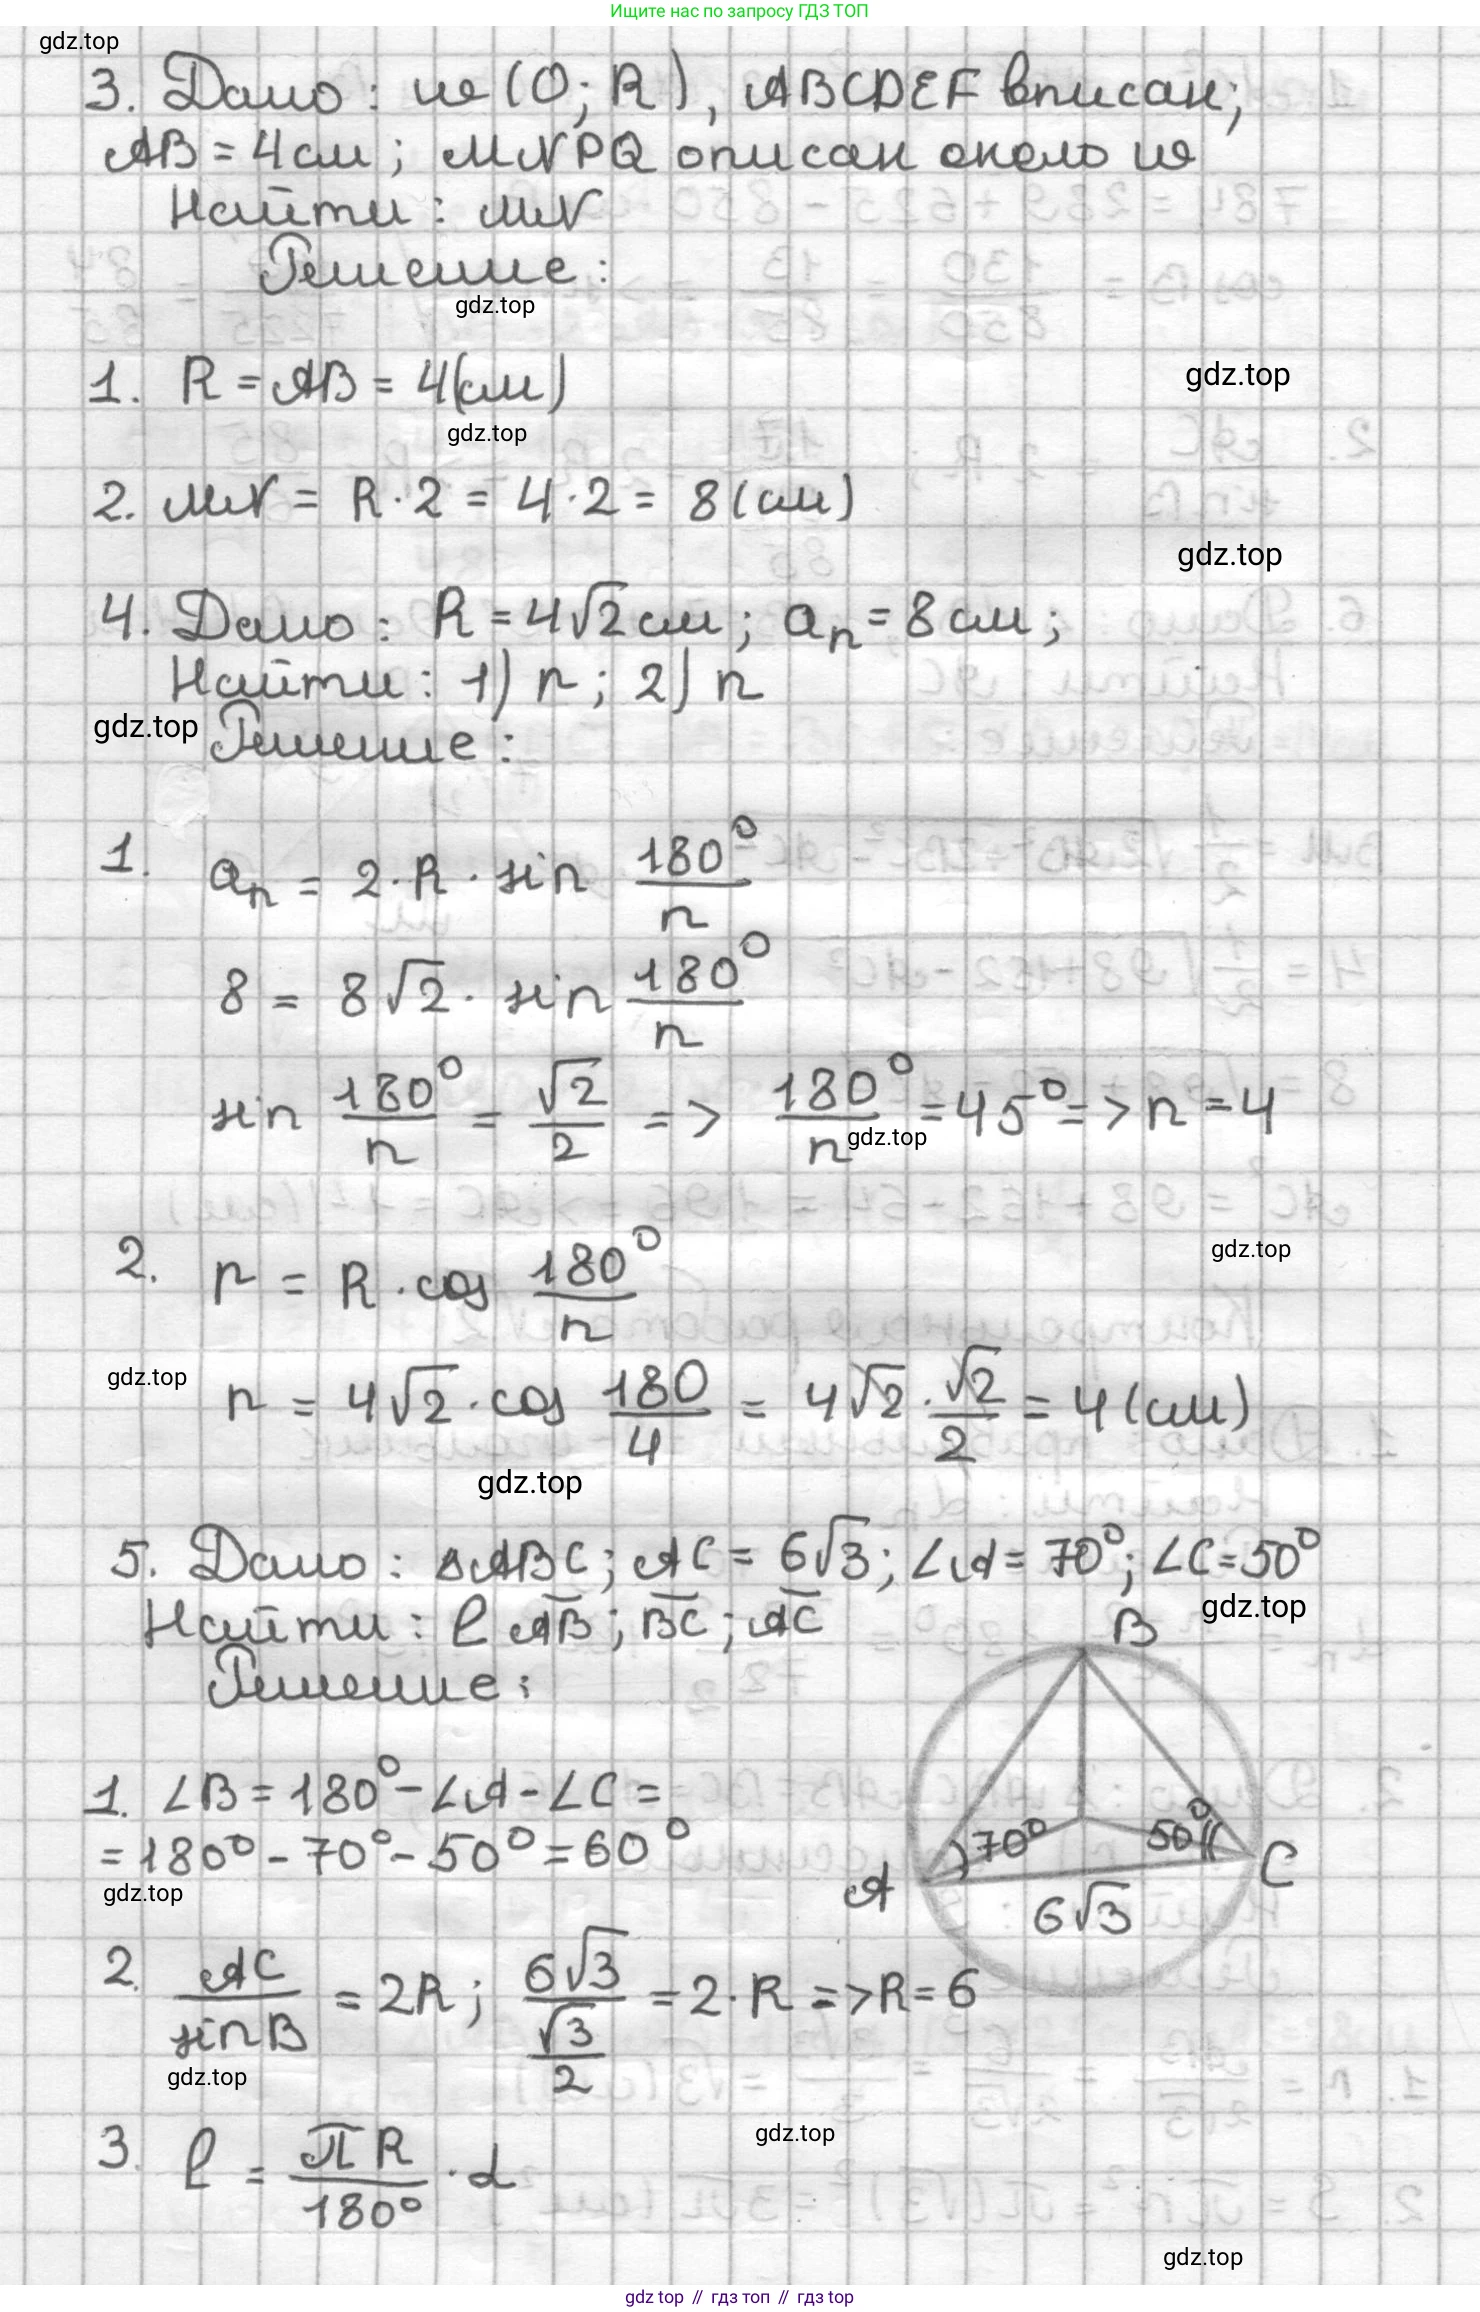 Ищите нас по запросу ГДЗ ТОП
gdz.top
3. Дано: ω(O; R), ABCDEF вписан;
AB = 4 см; MNPQ описан около ω
Найти: MN
Решение:
gdz.top
1. R = AB = 4(см)
gdz.top
gdz.top
2. MN = R · 2 = 4 · 2 = 8 (см)
gdz.top
4. Дано: R = 4√2 см; aₙ = 8 см;
Найти: 1) n; 2) r
gdz.top
Решение:
1. aₙ = 2 · R · sin 180°/n
8 = 8√2 · sin 180°/n
sin 180°/n = √2/2 => 180°/n = 45° => n = 4
gdz.top
gdz.top
2. r = R · cos 180°/n
gdz.top
r = 4√2 · cos 180/4 = 4√2 · √2/2 = 4 (см)
gdz.top
5. Дано: ΔABC; AC = 6√3; ∠A = 70°; ∠C = 50°
gdz.top
Найти: ℓ A͡B; B͡C; A͡C
B
Решение:
1. ∠B = 180° - ∠A - ∠C =
= 180° - 70° - 50° = 60°
70° 50°
A C
6√3
gdz.top
2. AC/sin B = 2R; 6√3/(√3/2) = 2 · R => R = 6
gdz.top
gdz.top
3. ℓ = πR/180° · α
gdz.top
gdz top // гдз топ // gdz top